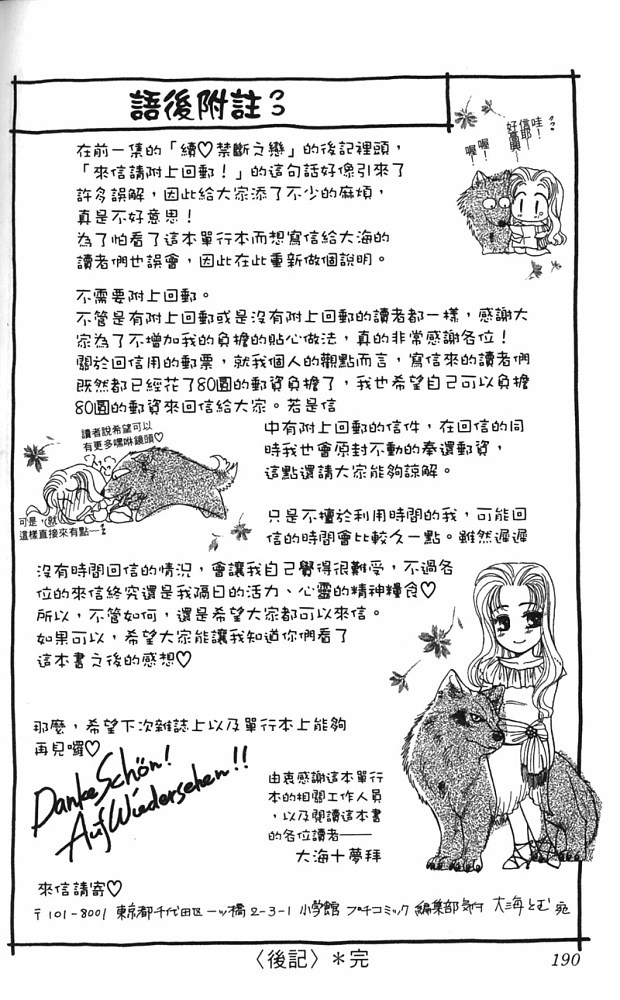 語後附註
在前一集的「續♡禁斷之戀」的後記裡頭，
「來信請附上回郵！」的這句話好像引來了
許多誤解，因此給大家添了不少的麻煩，
真是不好意思！
為了怕看了這本單行本而想寫信給大海的
讀者們也誤會，因此在此重新做個說明。
哇！
信耶—
好高興！
喔！
喔！
不需要附上回郵。
不管是有附上回郵或是沒有附上回郵的讀者都一樣，感謝大
家為了不增加我的負擔的貼心做法，真的非常感謝各位！
關於回信用的郵票，就我個人的觀點而言，寫信來的讀者們
既然都已經花了80圓的郵資負擔了，我也希望自己可以負擔
80圓的郵資來回信給大家。若是信
中有附上回郵的信件，在回信的同
時我也會原封不動的奉還郵資，
這點還請大家能夠諒解。
讀者說希望可以
有更多嘿咻鏡頭♡
可是，就
這樣直接來有點—
只是不擅於利用時間的我，可能回
信的時間會比較久一點。雖然遲遲
沒有時間回信的情況，會讓我自己覺得很難受，不過各
位的來信終究還是我隔日的活力、心靈的精神糧食♡
所以，不管如何，還是希望大家都可以來信。
如果可以，希望大家能讓我知道你們看了
這本書之後的感想♡
那麼，希望下次雜誌上以及單行本上能夠
再見囉♡
Danke Schön!
Auf Wiedersehen!!
由衷感謝這本單行
本的相關工作人員
，以及閱讀這本書
的各位讀者——
大海十夢拜
來信請寄♡
〒101-8001 東京都千代田区一ッ橋2-3-1 小学館 プチコミック 編集部気付 大海とむ 宛
〈後記〉＊完
190